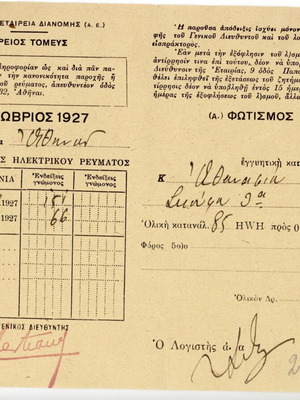 ΕΤΑΙΡΕΙΑ ΔΙΑΝΟΜΗΣ (Α. Ε.)
ΡΕΙΟΣ ΤΟΜΕΥΣ
ληροφορίαν ὡς καὶ διὰ πᾶν πα-
τὴν κανονικότητα παροχῆς ἢ
τοῦ ρεύματος, ἀπευθυντέον ὁδὸς
62, Ἀθῆναι.
ΩΒΡΙΟΣ 1927
Σ ΗΛΕΚΤΡΙΚΟΥ ΡΕΥΜΑΤΟΣ
ΝΙΑ
Ἐνδείξεις γνώμονος
Ἐνδείξεις γνώμονος
1927 151
1927 66
ΓΕΝΙΚΟΣ ΔΙΕΥΘΥΝΤΗΣ
Ἡ παροῦσα ἀπόδειξις ἰσχύει μόνον
φῆς τοῦ Γενικοῦ Διευθυντοῦ καὶ τοῦ λο
εἰσπράκτορος.
Ἐὰν μετὰ τὴν ἐξόφλησιν τοῦ λ)σμ
ἀντίρρησίν τινα ἐπὶ τούτου, δέον νὰ ὑπο
Διεύθυνσιν τῆς Ἑταιρίας,
θέλει ἐπιληφθῆ τῆς ἐξετάσεως τοῦ ζητήμ
τίρρησις δέον νὰ ὑποβληθῇ ἐντὸς 15 ἡμ
ἡμέρας τῆς ἐξοφλήσεως τοῦ λ)σμοῦ, ἄλλω
(Α.) ΦΩΤΙΣΜΟΣ
ἐγγυητικὴ κατ
Κ
Ὁλικὴ κατανάλ. 85 HWH πρὸς 0
Φόρος 5ο)ο
Ὁλικὸν Δρ.
Ὁ Λογιστὴς ἁ)α